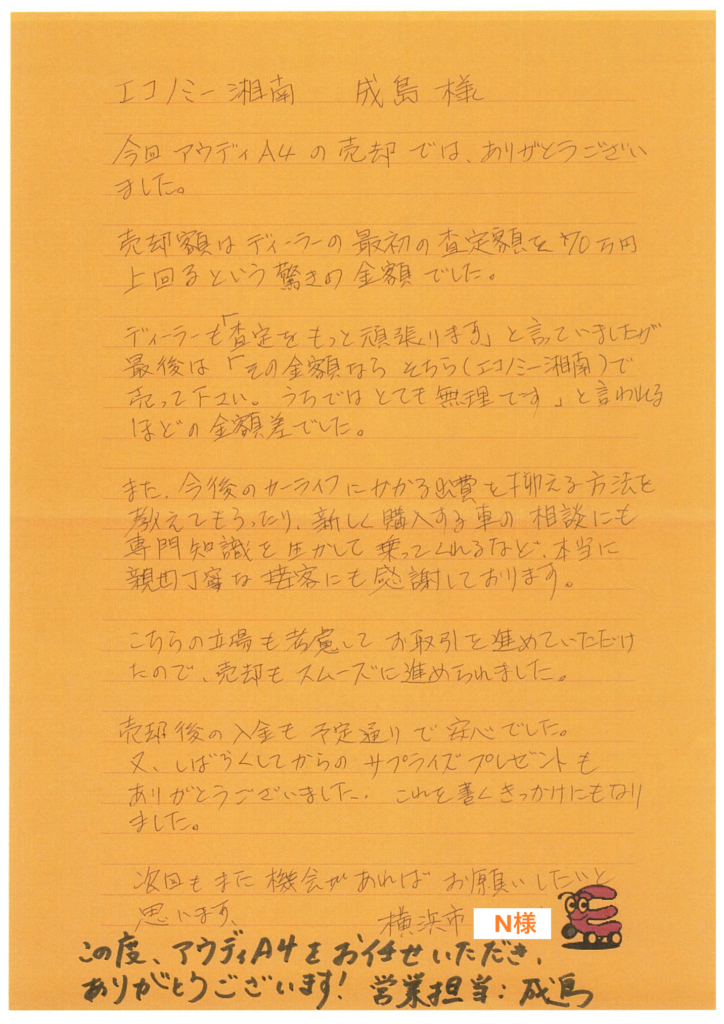 エコノミー湘南　成島 様
今回 アウディA4 の 売却 では、ありがとうござい
ました。
売却額は ディーラーの 最初の 査定額を 70万円
上回るという 驚きの 金額 でした。
ディーラーも「査定を もっと 頑張ります」と 言っていましたが
最後は 「その金額なら そちら(エコノミー湘南)で
売って 下さい。うちでは とても 無理です」と 言われる
ほどの 金額差でした。
また、今後の カーライフに かかる 出費を 抑える 方法を
教えてもらったり、新しく 購入する 車の 相談にも
専門知識を 生かして 乗ってくれるなど、本当に
親切丁寧な 接客にも 感謝しております。
こちらの立場も 考慮して お取引を 進めていただけ
たので、売却も スムーズに 進められました。
売却後の 入金も 予定通りで 安心でした。
又、しばらくしてからの サプライズプレゼントも
ありがとうございました。これを 書く きっかけにもなり
ました。
次回も また 機会があれば お願いしたいと
思います、 横浜市 N様
この度、アウディA4を お任せいただき、
ありがとうございます! 営業担当:成島